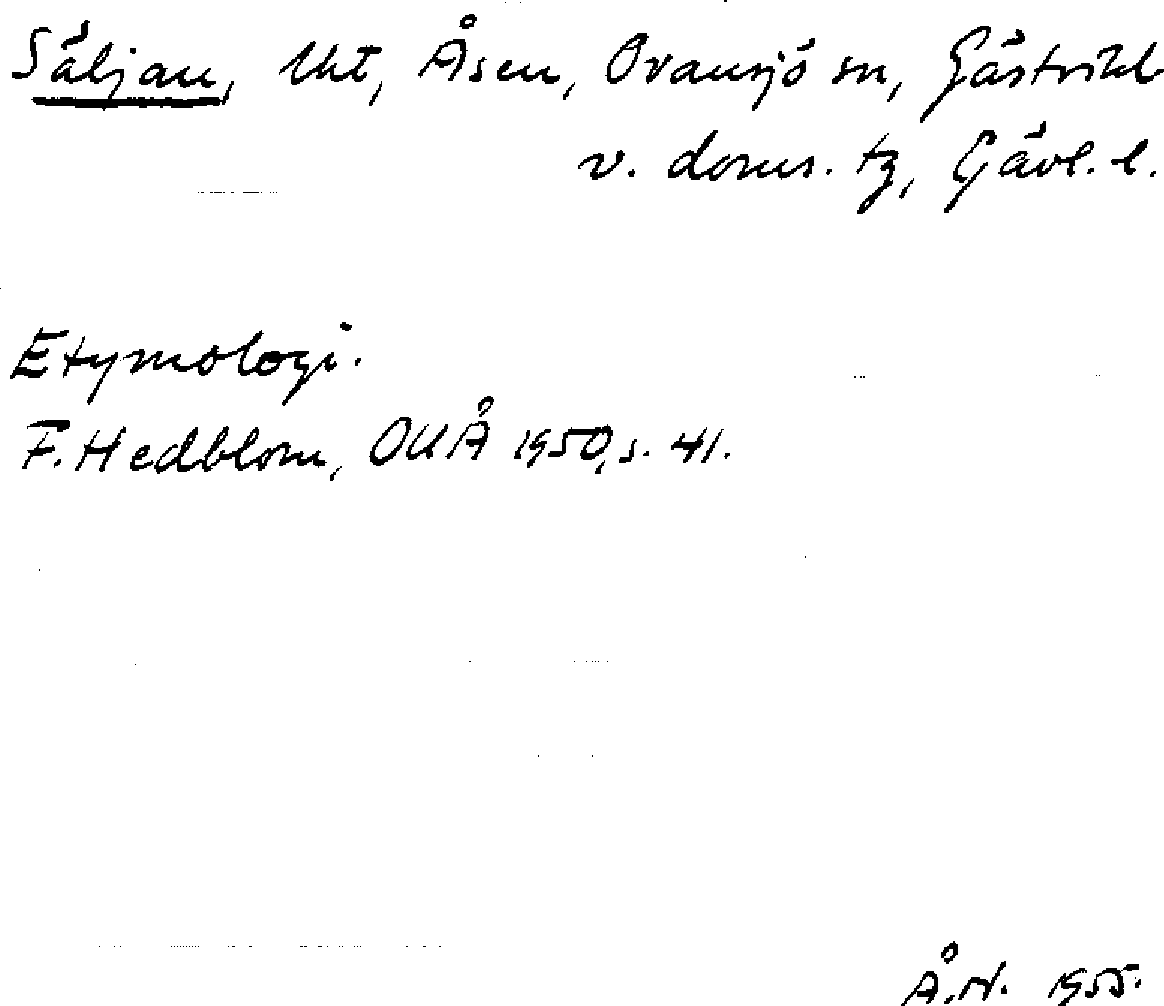 Säljan, Ukt, Åsen, Ovansjö sn, Gästrikl.
v. doms. tg, Gävl. l.
Etymologi.
F. Hedblom, OUÅ 1950, s. 41.
Å.N. 1955.